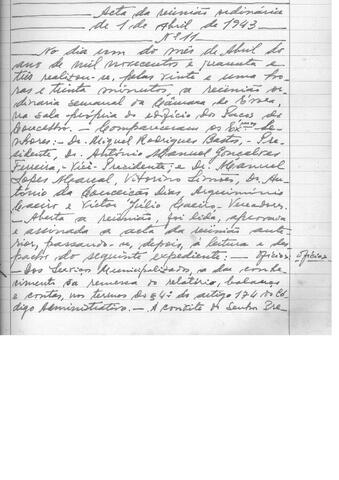 Acta da reunião ordinária
de 1 de Abril de 1943
Nº 11
No dia um do mês de Abril do
ano de mil novecentos e quarenta e
três realizou-se, pelas vinte e uma ho-
ras e trinta minutos, a reunião or-
dinária semanal da Câmara de
na sala própria do edifício dos Paços do
Concelho. — Compareceram os Exmos Se-
nhores: — Dr. Miguel Rodrigues Bastos, — Pre-
sidente, Dr. António Manuel Gonçalves
Ferreira, — Vice-Presidente; e Dr. Manuel
Lopes Marçal, Vitorino Dr. An-
tónio da Conceição Dias,
e Victor Júlio Vereadores.
— Aberta a reunião, foi lida, aprovada
e assinada a acta da reunião ante-
rior, passando-se, depois, à leitura e des-
pacho do seguinte expediente: — Ofícios: Ofícios
— Dos Serviços Municipalizados, a dar conhe-
cimento da remessa do relatório, balanço
e contas, nos termos do § 4º do artigo 174 do Có-
digo Administrativo. — A convite do Senhor Pre-